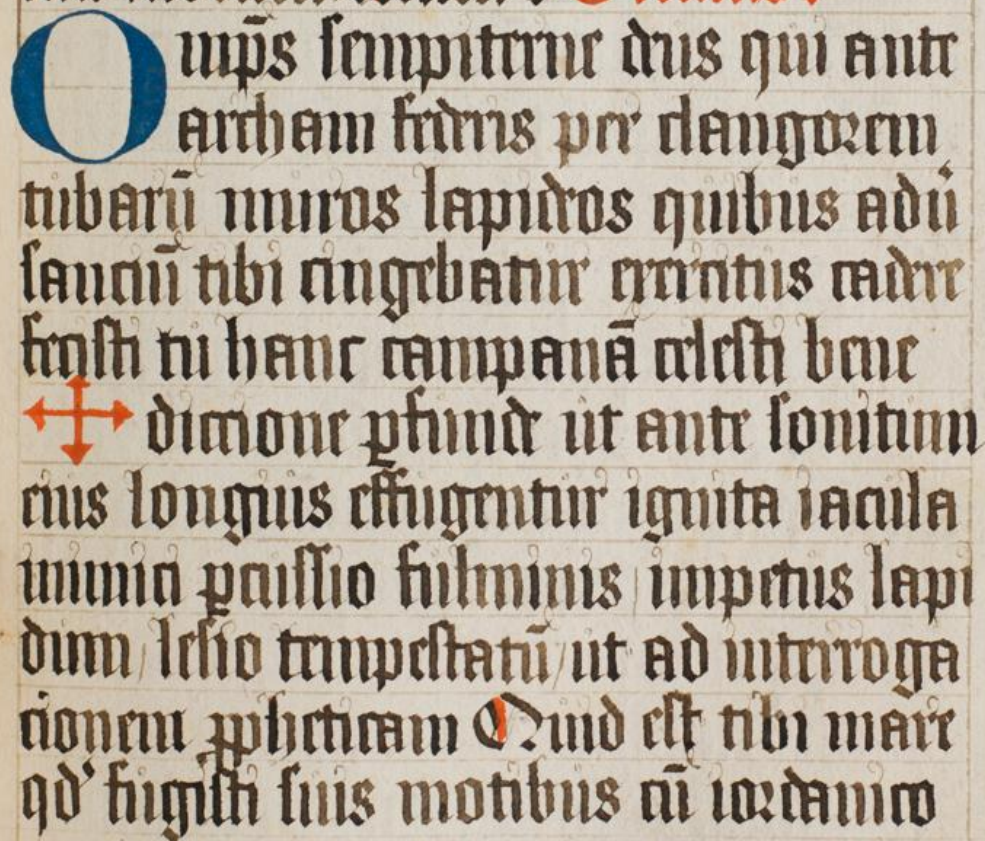 Omp̄s sempiterne deus qui ante
archam federis per clangorem
tubarū muros lapideos quibus adū
sanciū tibi cingebatur exercitus cadere
fecisti tu hanc campanā celesti bene
✠ diccione ꝑfunde ut ante sonitum
eius longius effugentur ignita iacula
inimici ꝑcussio fulminis / impetus lapi
dum / lesio tempestatū / ut ad interroga
cionem ꝓpheticam Quid est tibi mare
qd' fugisti suis motibus cū iordanico